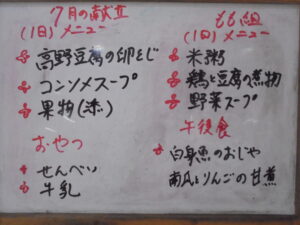 7月の献立
(1日)メニュー
高野豆腐の卵とじ
コンソメスープ
果物(漆)
おやつ
せんべい
牛乳
もも組
(1日)メニュー
米粥
鶏と豆腐の煮物
野菜スープ
午後食
白身魚のおじや
南瓜とりんごの甘煮